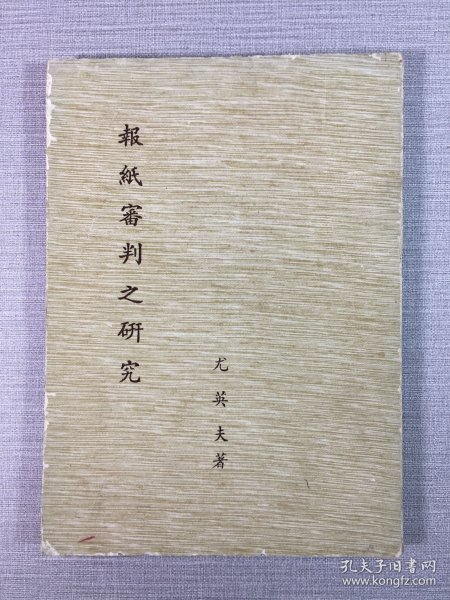 報紙審判之研究
尤英夫著
孔夫子旧书网
www.kongfz.com